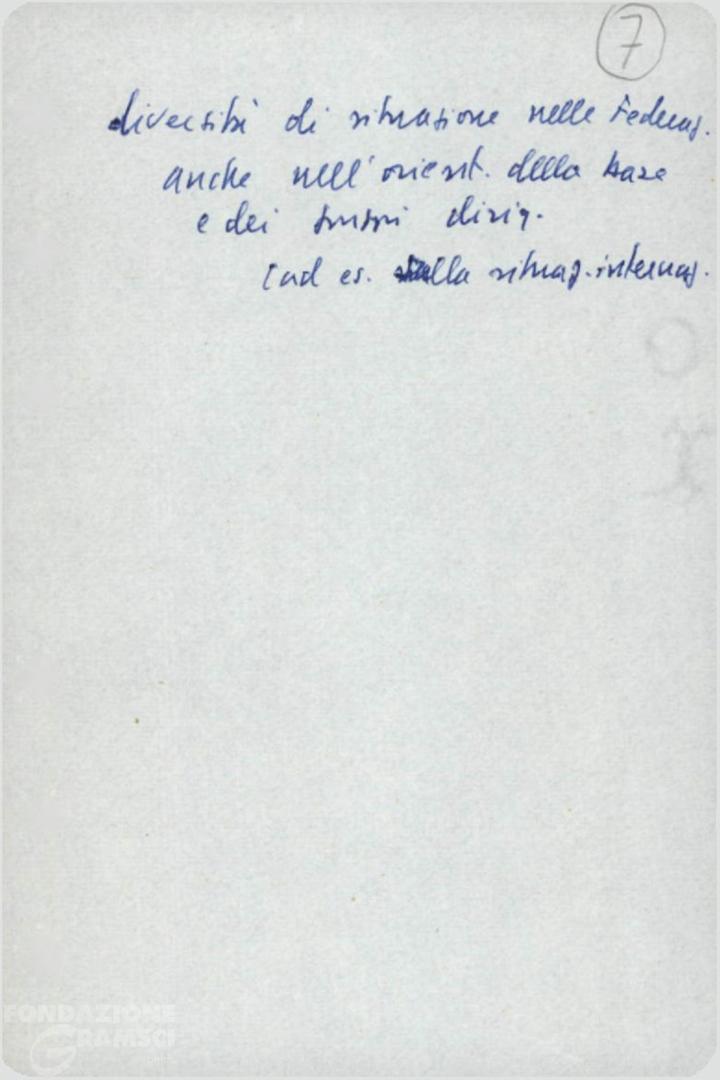 7
diversità di situazione nelle Federaz.
anche nell'orient. della base
e dei gruppi dirig.
(ad es. sulla situaz. internaz.
FONDAZIONE
GRAMSCI